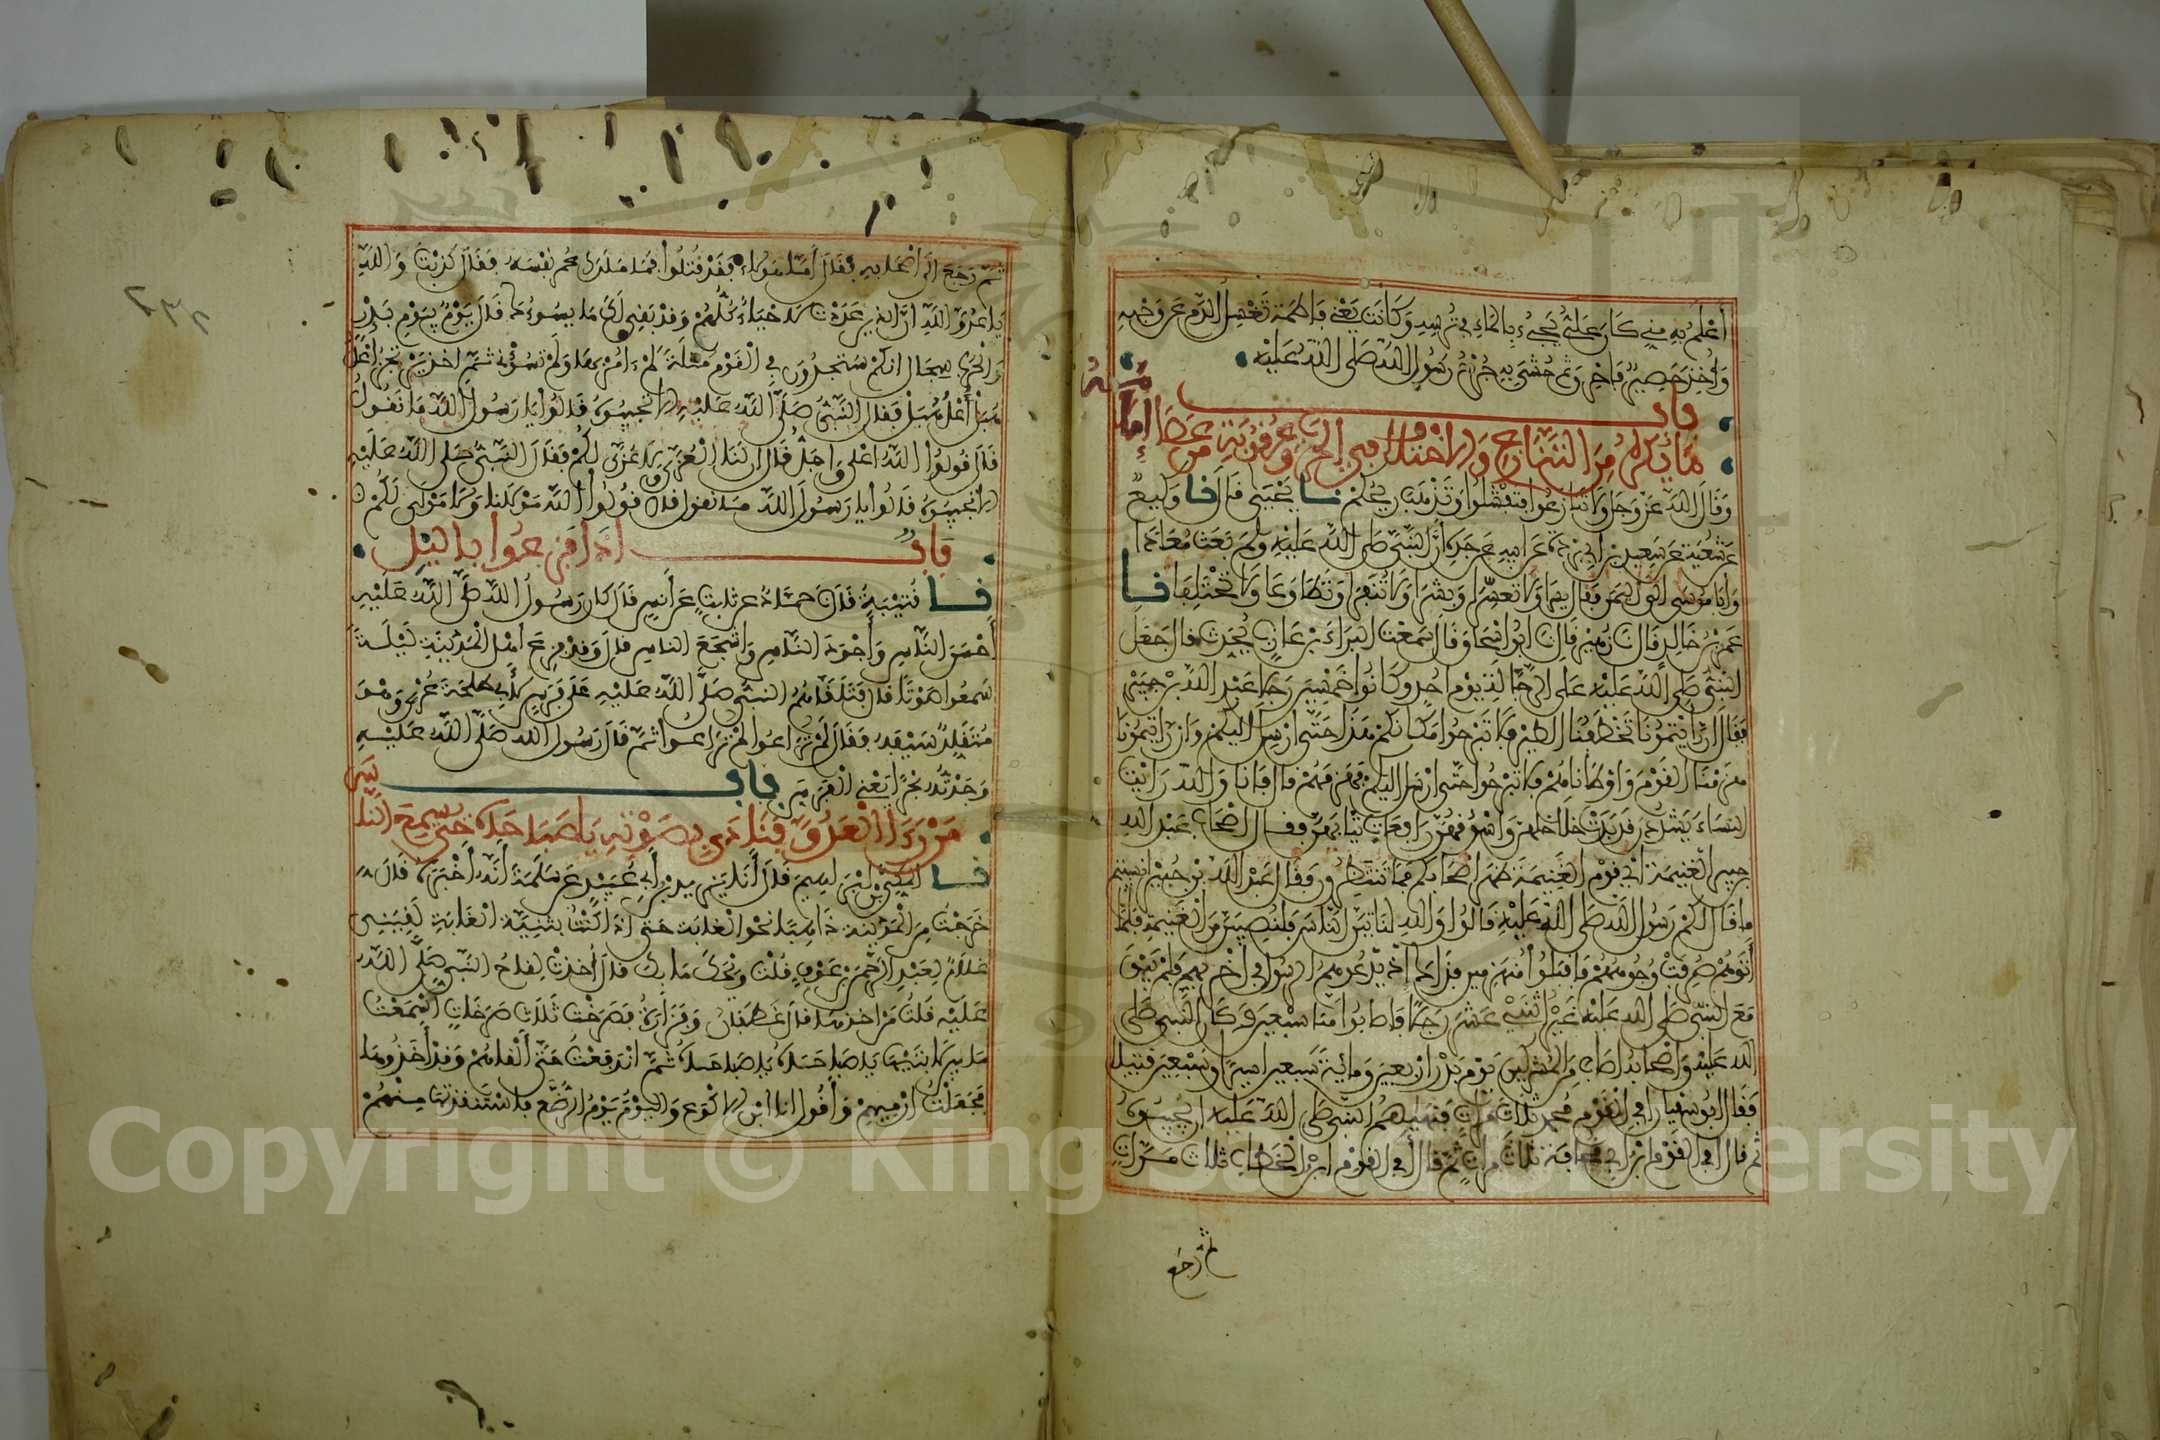 أعلم به مني كان علي يجيء بالماء في ترسه وكانت يعني فاطمة تغسل الدم عن وجهه
وأخذ حصير فأحرق ثم حشي به جرح رسول الله صلى الله عليه
باب
ما يكره من التنازع والاختلاف في الحرب وعقوبة من عصى إمامه
وقال الله عز وجل ولا تنازعوا فتفشلوا وتذهب ريحكم نا يحيى قال نا وكيع
عن شعبة عن سعيد بن أبي بردة عن أبيه عن جده أن النبي صلى الله عليه وسلم بعث معاذا
وأبا موسى إلى اليمن فقال يسرا ولا تعسرا وبشرا ولا تنفرا وتطاوعا ولا تختلفا نا
عمرو بن خالد قال نا زهير قال نا أبو إسحاق قال سمعت البراء بن عازب يحدث قال جعل
النبي صلى الله عليه على الرجالة يوم أحد وكانوا خمسين رجلا عبد الله بن جبير
فقال إن رأيتمونا تخطفنا الطير فلا تبرحوا مكانكم هذا حتى أرسل إليكم وإن رأيتمونا
هزمنا القوم وأوطأناهم فلا تبرحوا حتى أرسل إليكم فهزمهم قال فأنا والله رأيت
النساء يشددن قد بدت خلاخلهن وأسوقهن رافعات ثيابهن فقال أصحاب عبد الله
بن جبير الغنيمة أي قوم الغنيمة ظهر أصحابكم فما تنتظرون فقال عبد الله بن جبير أنسيتم
ما قال لكم رسول الله صلى الله عليه قالوا والله لنأتين الناس فلنصيبن من الغنيمة فلما
أتوهم صرفت وجوههم فأقبلوا منهزمين فذاك إذ يدعوهم الرسول في أخراهم فلم يبق
مع النبي صلى الله عليه غير اثني عشر رجلا فأصابوا منا سبعين وكان النبي صلى
الله عليه وأصحابه أصاب من المشركين يوم بدر أربعين ومائة سبعين أسيرا وسبعين قتيلا
فقال أبو سفيان أفي القوم محمد ثلاث مرات فنهاهم النبي صلى الله عليه أن يجيبوه
ثم قال أفي القوم ابن أبي قحافة ثلاث مرات ثم قال أفي القوم ابن الخطاب ثلاث مرات
ثم رجع
ثم رجع إلى أصحابه فقال أما هؤلاء فقد قتلوا فما ملك عمر نفسه فقال كذبت والله
يا عدو الله إن الذين عددت لأحياء كلهم وقد بقي لك ما يسوءك قال يوم بيوم بدر
والحرب سجال إنكم ستجدون في القوم مثلة لم ءامر بها ولم تسؤني ثم أخذ يرتجز اعل
هبل أعل هبل فقال النبي صلى الله عليه ألا تجيبوه قالوا يا رسول الله ما نقول
قال قولوا الله أعلى وأجل قال إن لنا العزى ولا عزى لكم فقال النبي صلى الله عليه
ألا تجيبوه قالوا يا رسول الله ما نقول قال قولوا الله مولانا ولا مولى لكم
باب إذا فزعوا بالليل
نا قتيبة قال نا حماد عن ثابت عن أنس قال كان رسول الله صلى الله عليه
أحسن الناس وأجود الناس وأشجع الناس قال وقد فزع أهل المدينة ليلة
سمعوا صوتا قال فتلقاهم النبي صلى الله عليه على فرس لأبي طلحة عري وهو
متقلد سيفه فقال لم تراعوا لم تراعوا ثم قال رسول الله صلى الله عليه
وجدته بحرا يعني الفرس باب
من رأى العدو فنادى بصوته يا صباحاه حتى يسمع الناس
نا المكي بن إبراهيم قال أنا يزيد بن أبي عبيد عن سلمة أنه أخبره قال
خرجت من المدينة ذاهبا نحو الغابة حتى إذا كنت بثنية الغابة لقيني
غلام لعبد الرحمن بن عوف قلت ويحك ما بك قال أخذت لقاح النبي صلى الله
عليه قلت من أخذها قال غطفان وفزارة فصرخت ثلاث صرخات أسمعت
ما بين لابتيها يا صباحاه يا صباحاه ثم اندفعت حتى ألقاهم وقد أخذوها
فجعلت أرميهم وأقول أنا ابن الأكوع واليوم يوم الرضع فاستنقذتها منهم
Copyright © King Saud University